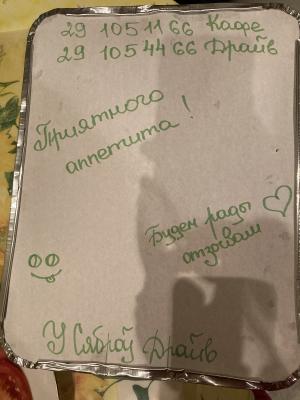 29 105 11 66 Кафе
29 105 44 66 Драйв
Приятного
аппетита!
Будем рады
отзывам
У Сяброў Драйв